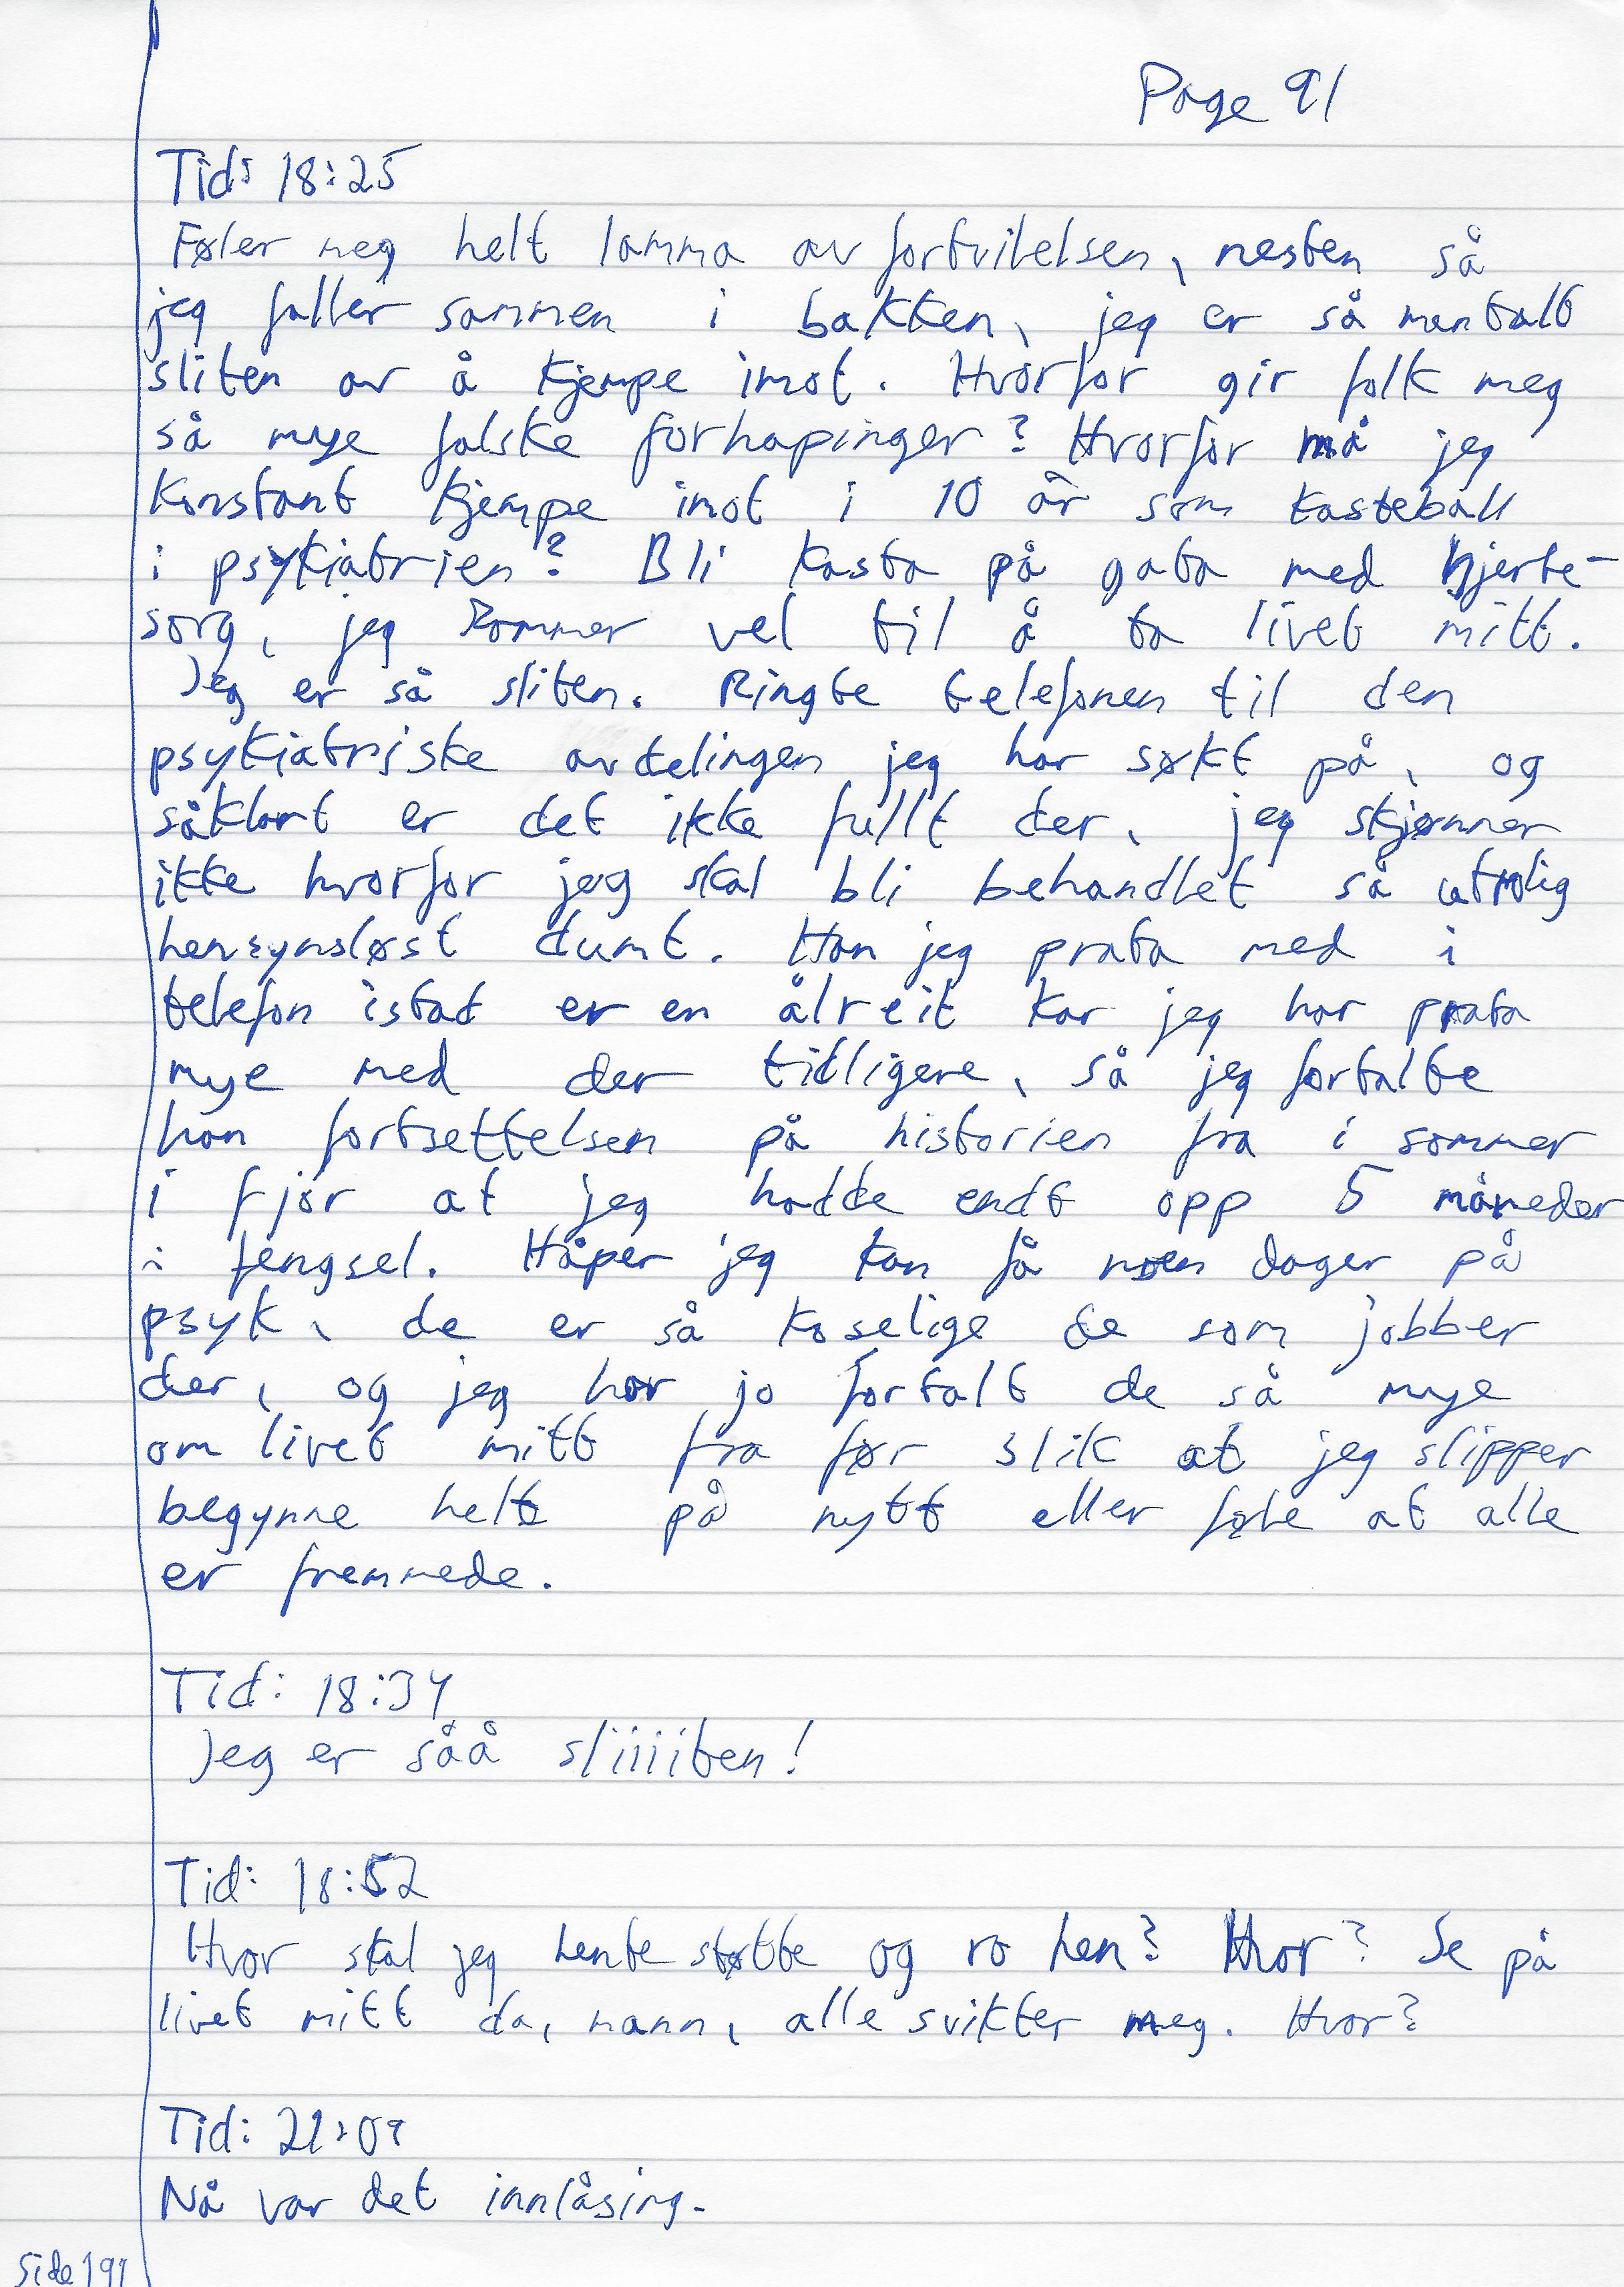 Page 91
Tid: 18:25
Føler meg helt lamma av fortvilelsen, nesten så
jeg faller sammen i bakken, jeg er så mentalt
sliten av å kjempe imot. Hvorfor gir folk meg
så mye falske forhåpinger? Hvorfor må jeg
konstant kjempe imot i 10 år som kasteball
i psykiatrien? Bli kasta på gata med hjerte-
sorg, jeg kommer vel til å ta livet mitt.
Jeg er så sliten. Ringte telefonen til den
psykiatriske avdelingen jeg har søkt på, og
såklart er det ikke fullt der, jeg skjønner
ikke hvorfor jeg skal bli behandlet så utrolig
hensynsløst dumt. Han jeg prata med i
telefon istad er en ålreit kar jeg har prata
mye med der tidligere, så jeg fortalte
han fortsettelsen på historien fra i sommer
i fjor at jeg hadde endt opp 5 måneder
i fengsel. Håper jeg kan få noen dager på
psyk, de er så koselige de som jobber
der, og jeg har jo fortalt de så mye
om livet mitt fra før slik at jeg slipper
begynne helt på nytt eller føle at alle
er fremmede.
Tid: 18:34
Jeg er såå sliiiiten!
Tid: 18:52
Hvor skal jeg hente støtte og ro hen? Hvor? Se på
livet mitt da, mann, alle svikter meg. Hvor?
Tid: 21:09
Nå var det innlåsing.
Side 191